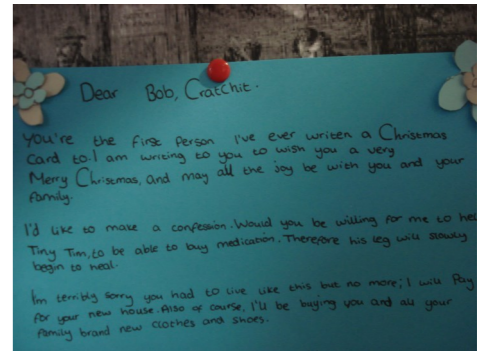 Dear Bob, Cratchit.
You're the first person I've ever writen a Christmas
Card to. I am writing to you to wish you a very
Merry Christmas, and may all the joy be with you and your
family.
I'd like to make a confession. Would you be willing for me to
Tiny Tim, to be able to buy medication. Therefore his leg will slowly
begin to heal.
I'm terribly sorry you had to live like this but no more; I will Pay
for your new house. Also of course, I'll be buying you and all your
family brand new clothes and shoes.